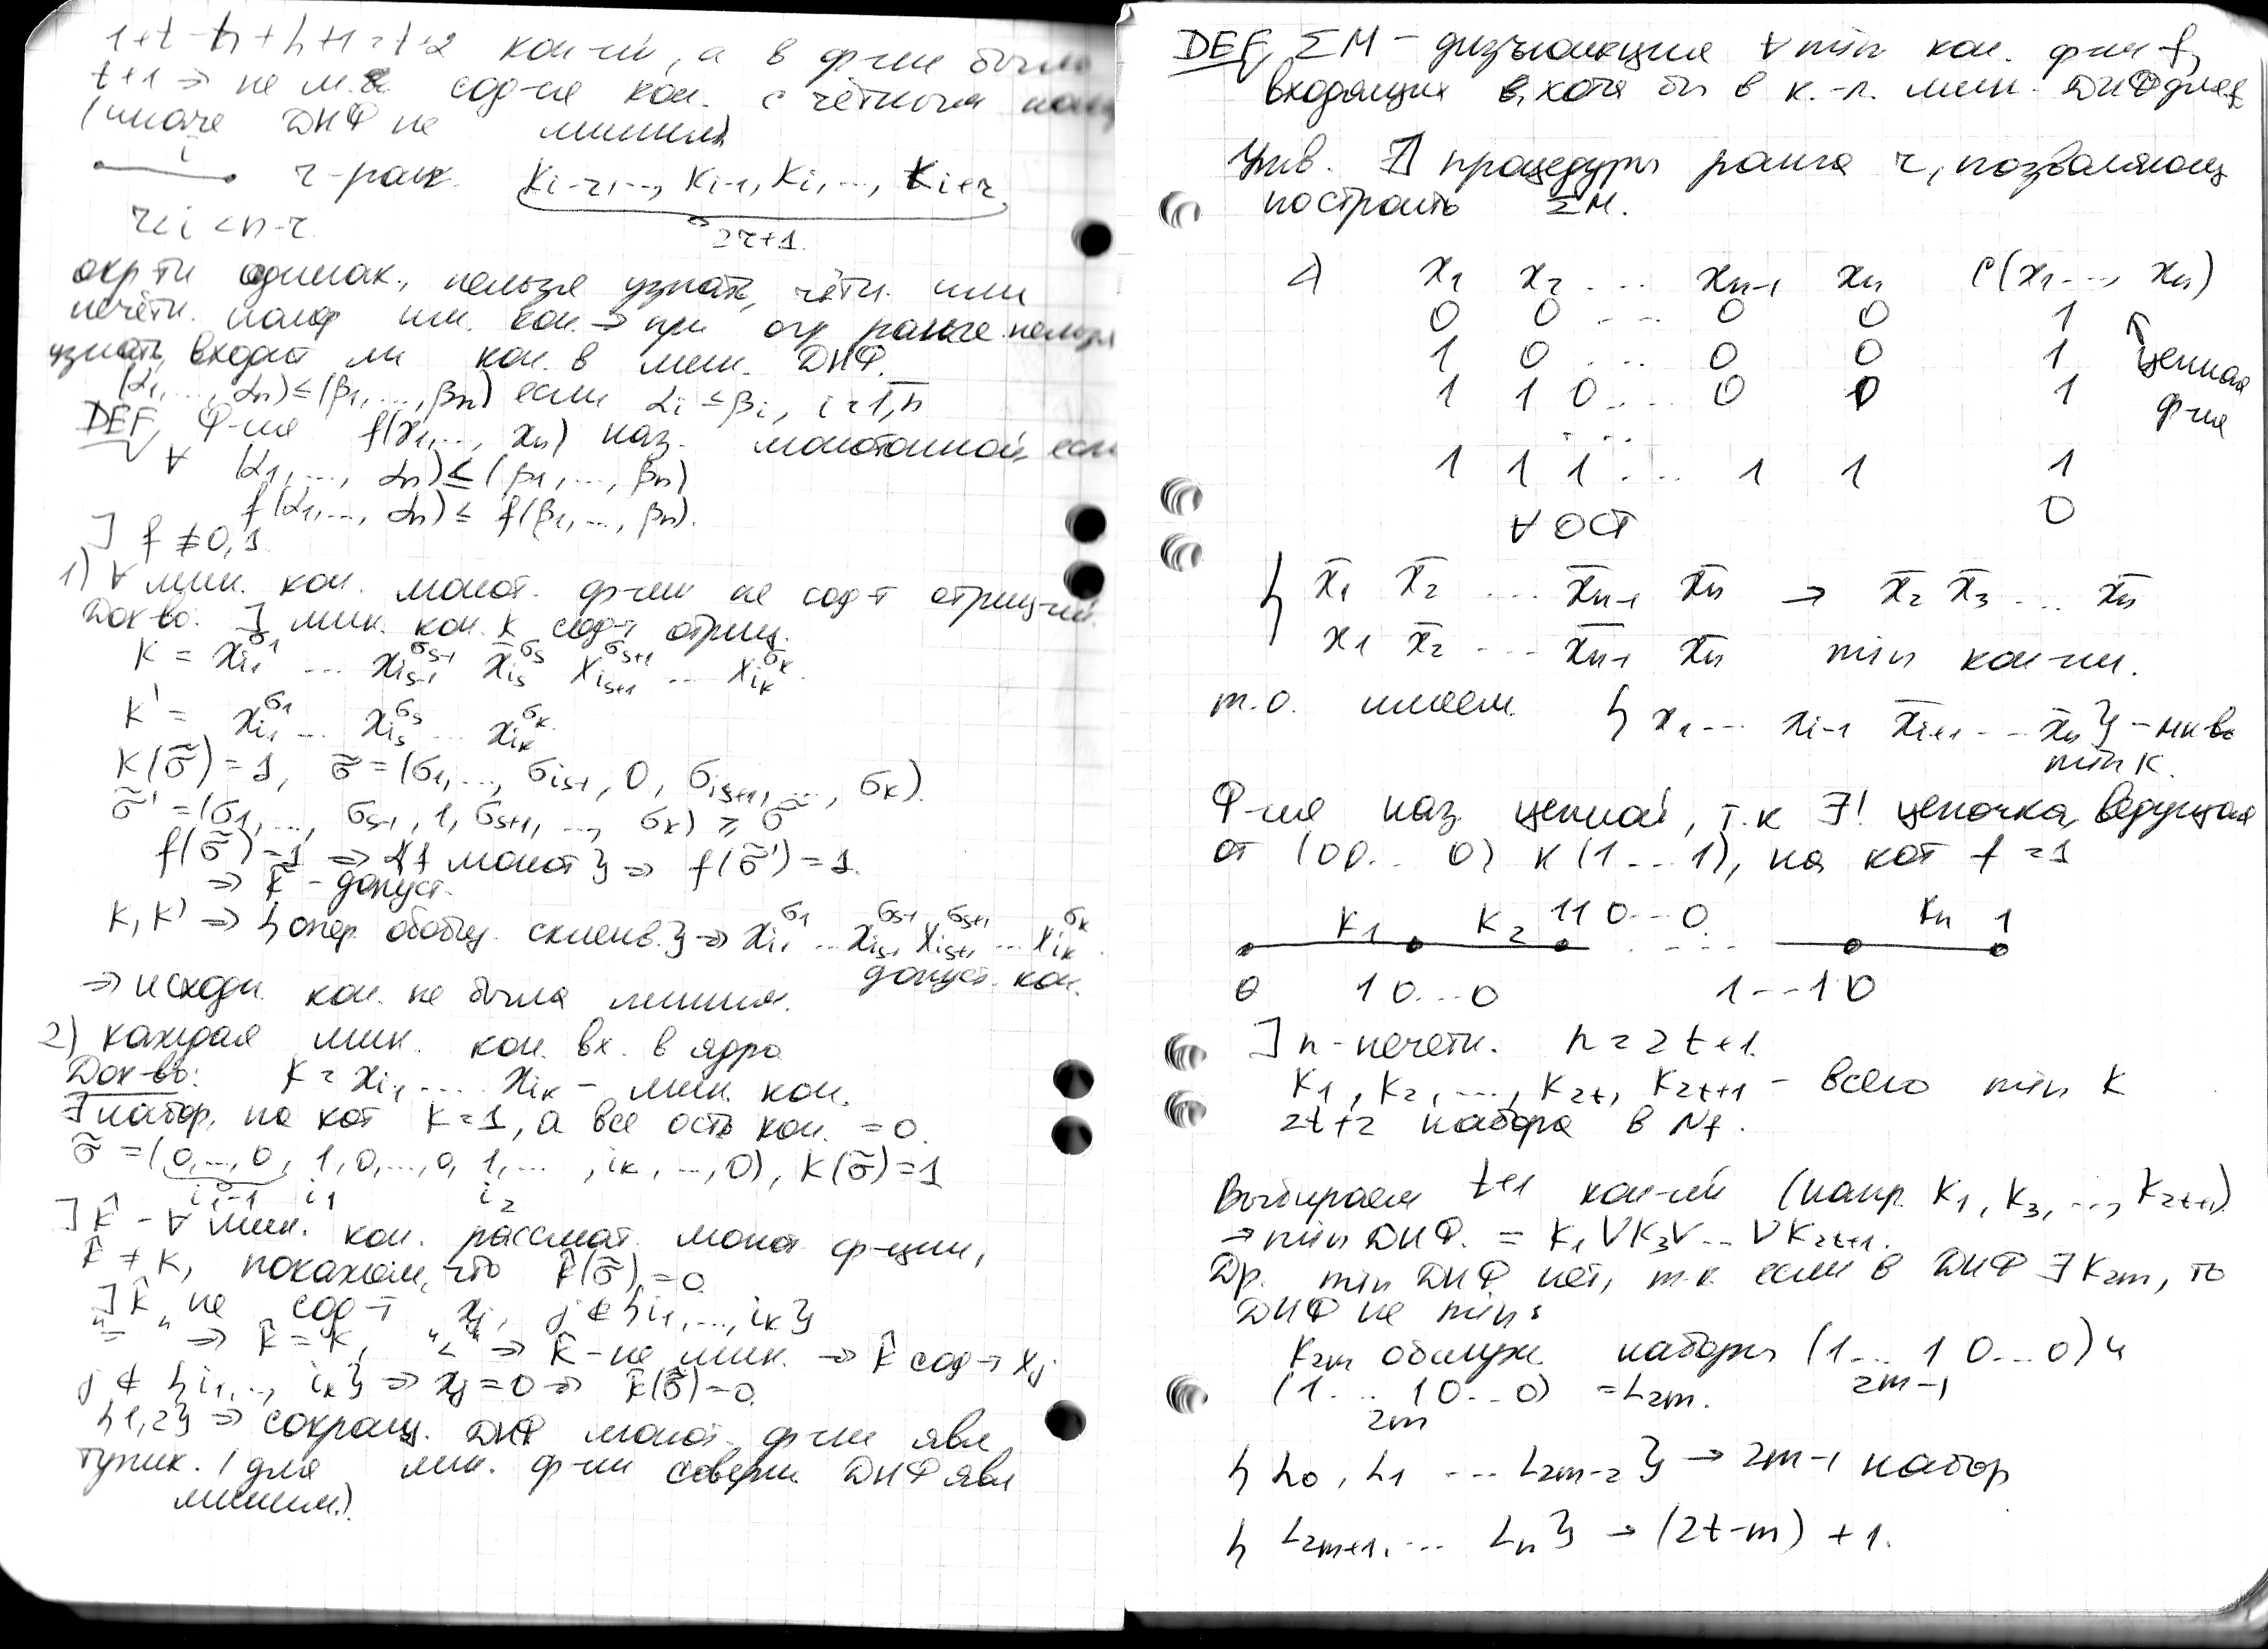 1+t-h+h+1=t+2 кон-ий, а в ф-ии было
t+1 ⇒ не м.б. сод-ся кон. с чётным
(иначе ДНФ не миним)
i
r-ранг. K_{i-r},..., K_{i-1}, K_i, ..., K_{i+r}
r<i<n-r. 2r+1.
окр-ти одинак., нельзя узнать, чётн. или
нечётн. номер им. кон. ⇒ при огр ранге нельзя
узнать, входит ли кон. в мин. ДНФ.
(α₁,..., αₙ)≤(β₁,...,βₙ) если αᵢ≤βᵢ, i=1,n
DEF Ф-ия f(x₁,..., xₙ) наз. монотонной, если
∀ (α₁,..., αₙ)≤(β₁,..., βₙ)
f(α₁,..., αₙ)≤ f(β₁,..., βₙ).
] f ≢ 0,1
1) ∀ мин. кон. монот. ф-ии не сод-т отриц-ий.
Док-во: ] мин. кон. K сод-т отриц.
K = x_{i₁}^{σ₁} ... x_{i_{s-1}}^{σ_{s-1}} x̄_{i_s}^{σ_s} x_{i_{s+1}}^{σ_{s+1}} ... x_{i_k}^{σ_k}.
K' = x_{i₁}^{σ₁} ... x_{i_s}^{σ_s} ... x_{i_k}^{σ_k}.
K(σ̃)=1, σ̃=(σ₁,..., σ_{is-1}, 0, σ_{is+1},..., σ_k).
σ̃'=(σ₁,..., σ_{s-1}, 1, σ_{s+1},..., σ_k) ≥ σ̃
f(σ̃)=1 ⇒ {f монот} ⇒ f(σ̃')=1.
⇒ K' - допуст.
K, K' ⇒ {опер. обобщ. склеив.} ⇒ x_{i₁}^{σ₁} ... x_{i_{s-1}}^{σ_{s-1}} x_{i_{s+1}}^{σ_{s+1}} ... x_{i_k}^{σ_k}.
допуст. кон.
⇒ исходн. кон. не была миним.
2) каждая мин. кон. вх. в ядро
Док-во: K = x_{i₁} ... x_{i_k} - мин. кон.
∃ набор, на кот K=1, а все ост кон. =0.
σ̃ =(0,...,0, 1, 0,...,0, 1,..., i_k, ..., 0), K(σ̃)=1
i₁-1 i₁ i₂
] K̂ - ∀ мин. кон. рассмат. монот ф-ции,
K̂ ≠ K, покажем, что K̂(σ̃)=0.
] K̂ не сод-т x_j, j ∉ {i₁,..., i_k}
"=" ⇒ K̂ = K, "<" ⇒ K̂ - не мин. ⇒ K̂ сод-т x_j
j ∉ {i₁,.., i_k} ⇒ x_j=0 ⇒ K̂(σ̃)=0.
{1,2} ⇒ сокращ. ДНФ монот. ф-ии явл
тупик. (для мин. ф-ии соверш ДНФ явл
миним.)
DEF ΣM - дизъюнкция ∀ min кон. ф-ии f,
входящих в хотя бы в к.-л. мин. ДНФ для f
Утв. ∄ процедуры ранга r, позволяющ
построить ΣM.
◁ x₁ x₂ ... xₙ₋₁ xₙ f(x₁..., xₙ)
0 0 ... 0 0 1
1 0 ... 0 0 1 ↑ цепная
1 1 0 ... 0 0 1 ф-ия
...
1 1 1 ... 1 1 1
∀ ОСТ 0
{ x̄₁ x̄₂ ... x̄ₙ₋₁ x̄ₙ → x̄₂ x̄₃ ... x̄ₙ
x₁ x̄₂ ... x̄ₙ₋₁ x̄ₙ min кон-ии.
т.о. имеем { x₁ ... xᵢ₋₁ x̄ᵢ₊₁ ... x̄ₙ} - мн-во
min K.
Ф-ия наз цепной, т.к ∃! цепочка, ведущая
от (00... 0) к (1...1), на кот f=1
K₁ K₂ 110...0 Kₙ 1
0 10...0 1...10
] n-нечетн. n=2t+1.
K₁, K₂, ..., K₂ₜ, K₂ₜ₊₁ - всего min K
2t+2 набора в N_f.
Выбираем t+1 кон-ий (напр K₁, K₃, ..., K₂ₜ₊₁)
→ min ДНФ. = K₁∨K₃∨...∨K₂ₜ₊₁.
Др. min ДНФ нет, т.к если в ДНФ ∃ K₂ₘ, то
ДНФ не min:
K₂ₘ обслуж. наборы (1...1 0...0) и
2m-1
(1...10...0) =L₂ₘ.
2m
{ L₀, L₁ ... L₂ₘ₋₂ } → 2m-1 набор
{ L₂ₘ₊₁,... Lₙ } → (2t-m) + 1.